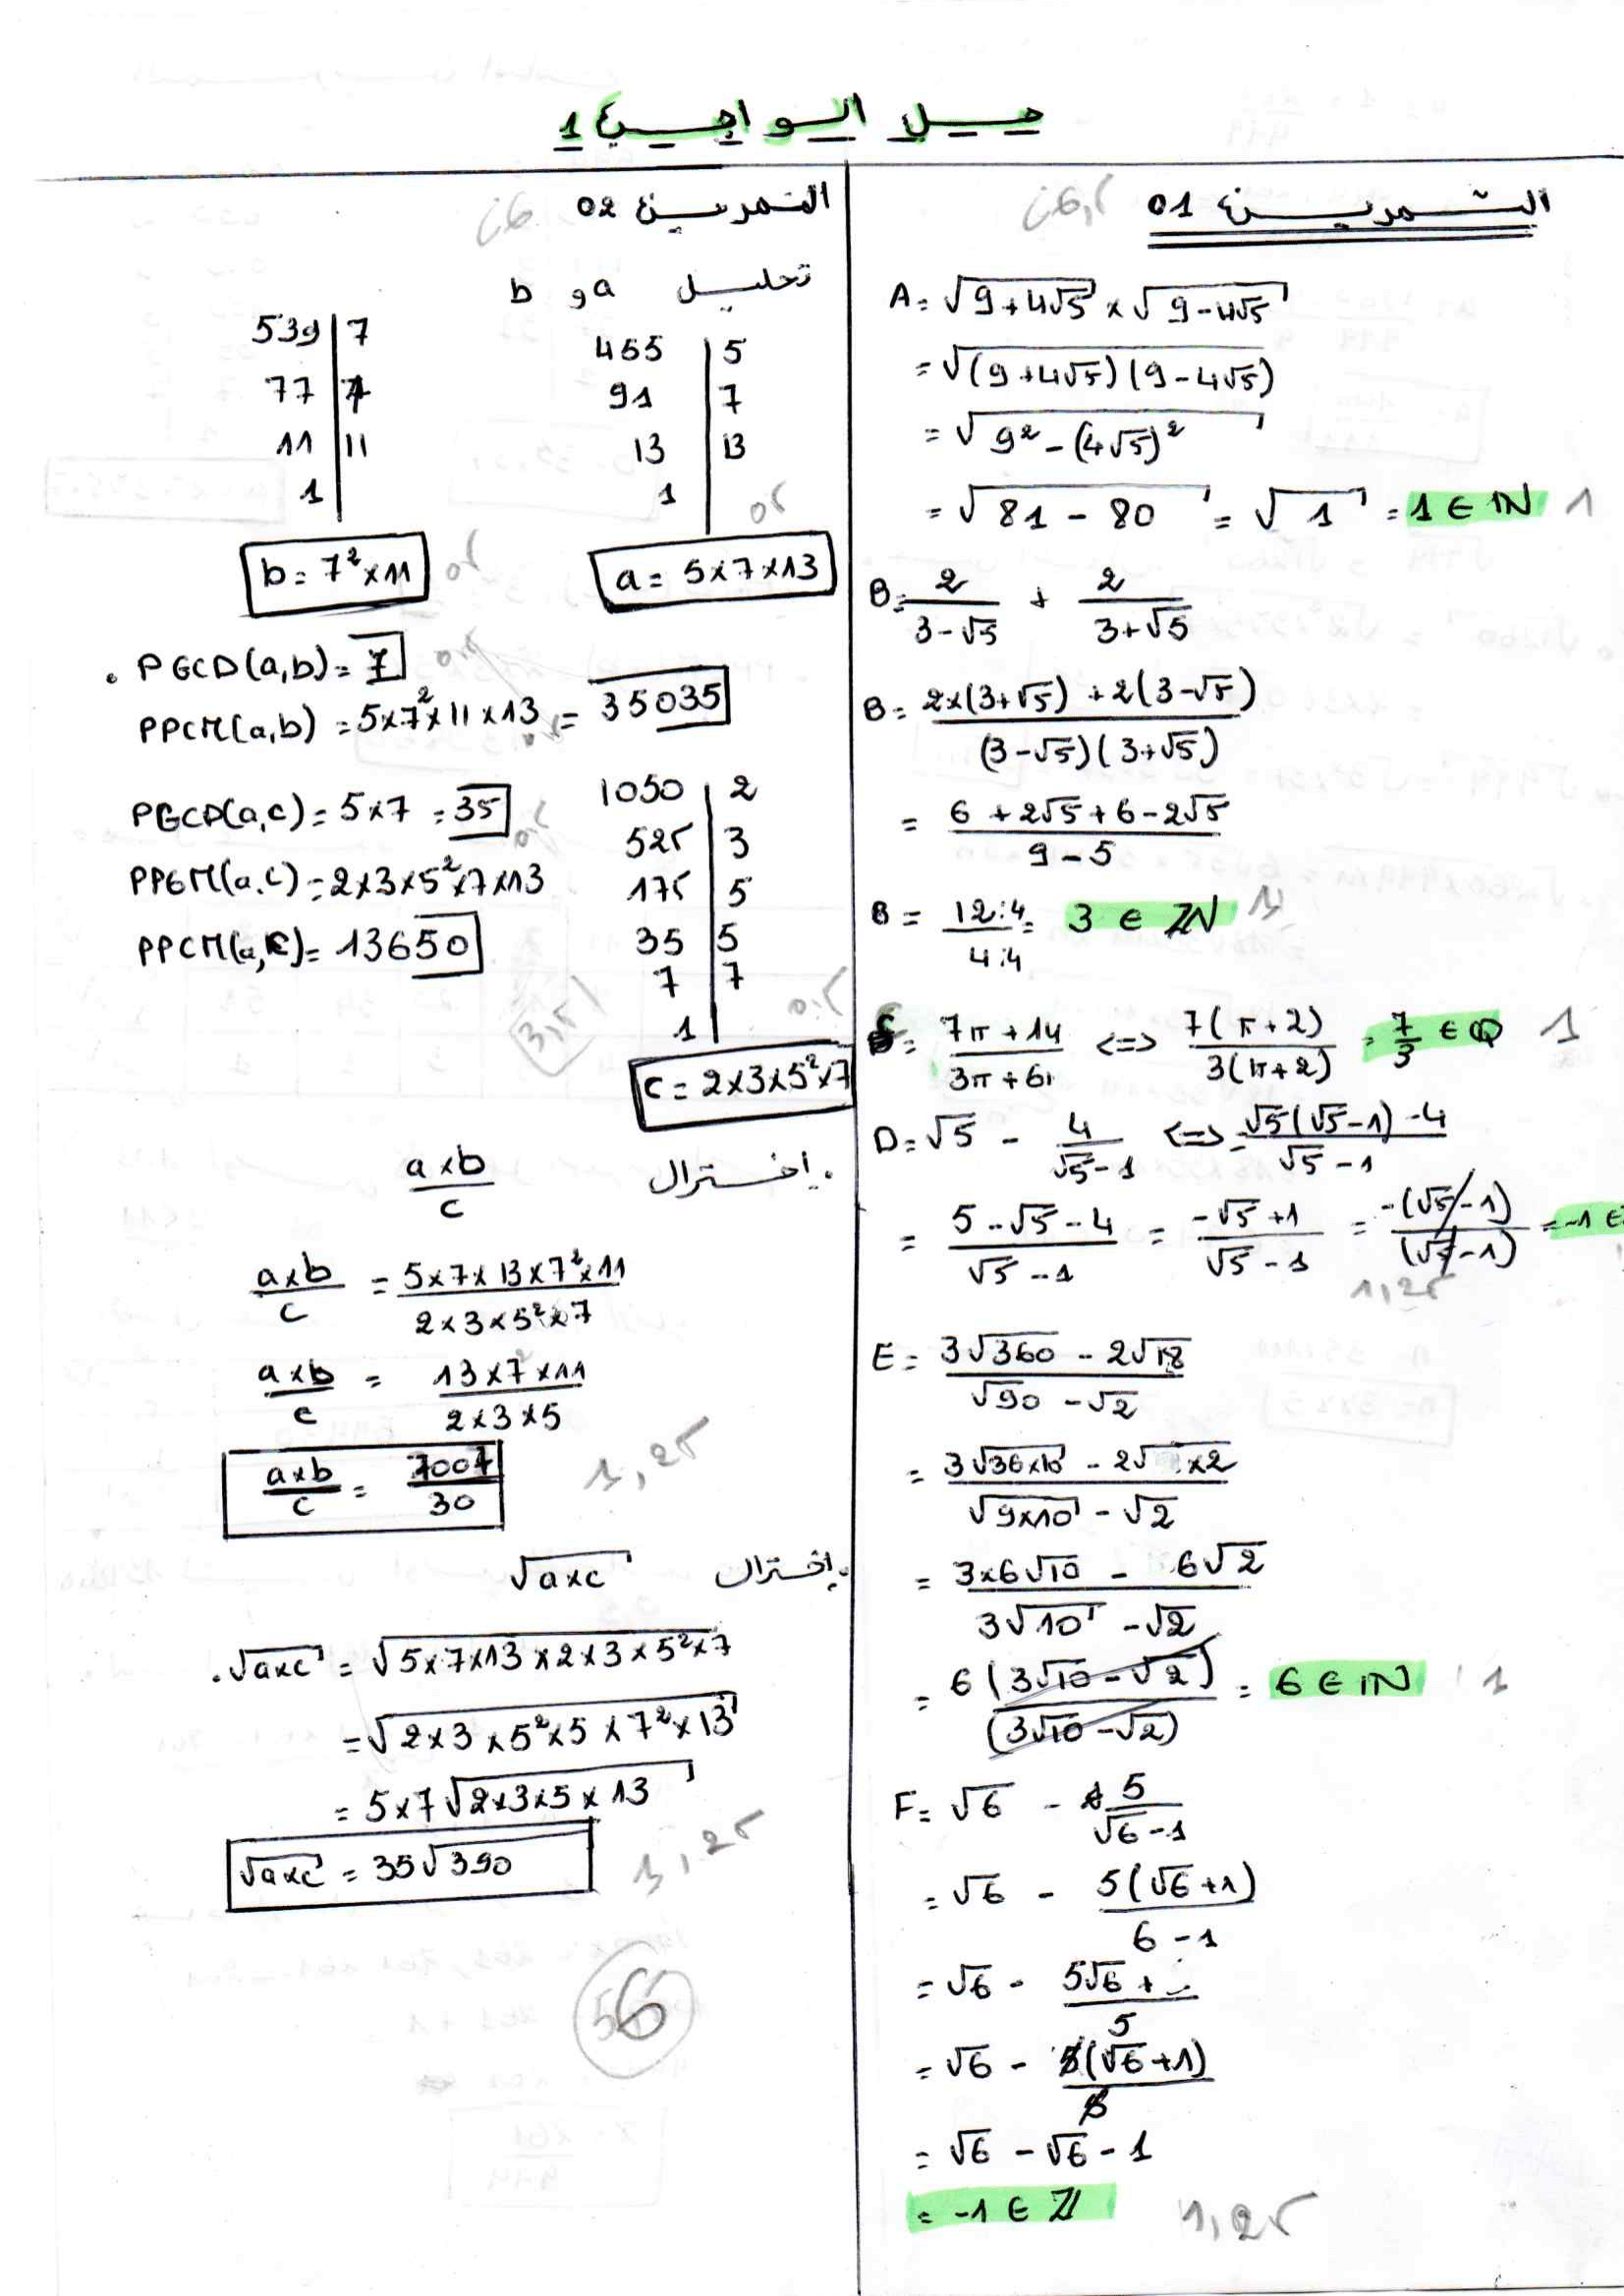 حل الواجب 1
التمرين 01
A = √(9+4√5) × √(9-4√5)
= √((9+4√5)(9-4√5))
= √(9² - (4√5)²)
= √(81 - 80) = √1 = 1 ∈ IN 1
B = 2/(3-√5) + 2/(3+√5)
B = (2×(3+√5) + 2(3-√5))/((3-√5)(3+√5))
= (6 + 2√5 + 6 - 2√5)/(9 - 5)
B = 12:4/4:4 = 3 ∈ IN 1
C = (7π + 14)/(3π + 6) <=> 7(π + 2)/3(π + 2) = 7/3 ∈ Q 1
D = √5 - 4/(√5-1) <=> = (√5(√5-1) - 4)/(√5 - 1)
= (5 - √5 - 4)/(√5 - 1) = (-√5 + 1)/(√5 - 1) = -(√5 - 1)/(√5 - 1) = -1 ∈
1,25
E = (3√360 - 2√18)/(√90 - √2)
= (3√(36×10) - 2√( ×2))/(√(9×10) - √2)
= (3×6√10 - 6√2)/(3√10 - √2)
= 6(3√10 - √2)/(3√10 - √2) = 6 ∈ IN 1
F = √6 - 5/(√6 - 1)
= √6 - 5(√6 + 1)/(6 - 1)
= √6 - (5√6 + )/5
= √6 - 5(√6 + 1)/5
= √6 - √6 - 1
= -1 ∈ Z 1,25
التمرين 02
تحليل a و b
455 | 5
91 | 7
13 | 13
1
a = 5×7×13
539 | 7
77 | 7
11 | 11
1
b = 7² × 11
. PGCD(a,b) = 7
PPCM(a,b) = 5×7²×11×13 = 35035
1050 | 2
525 | 3
175 | 5
35 | 5
7 | 7
1
c = 2×3×5²×7
PGCD(a,c) = 5×7 = 35
PPCM(a,c) = 2×3×5²×7×13
PPCM(a,c) = 13650
3,5
. اختزال (a×b)/c
(a×b)/c = (5×7×13×7²×11)/(2×3×5²×7)
(a×b)/c = (13×7²×11)/(2×3×5)
(a×b)/c = 7007/30
1,25
. اختزال √(a×c)
. √(a×c) = √(5×7×13×2×3×5²×7)
= √(2×3×5²×5×7²×13)
= 5×7√(2×3×5×13)
√(a×c) = 35√390
1,25